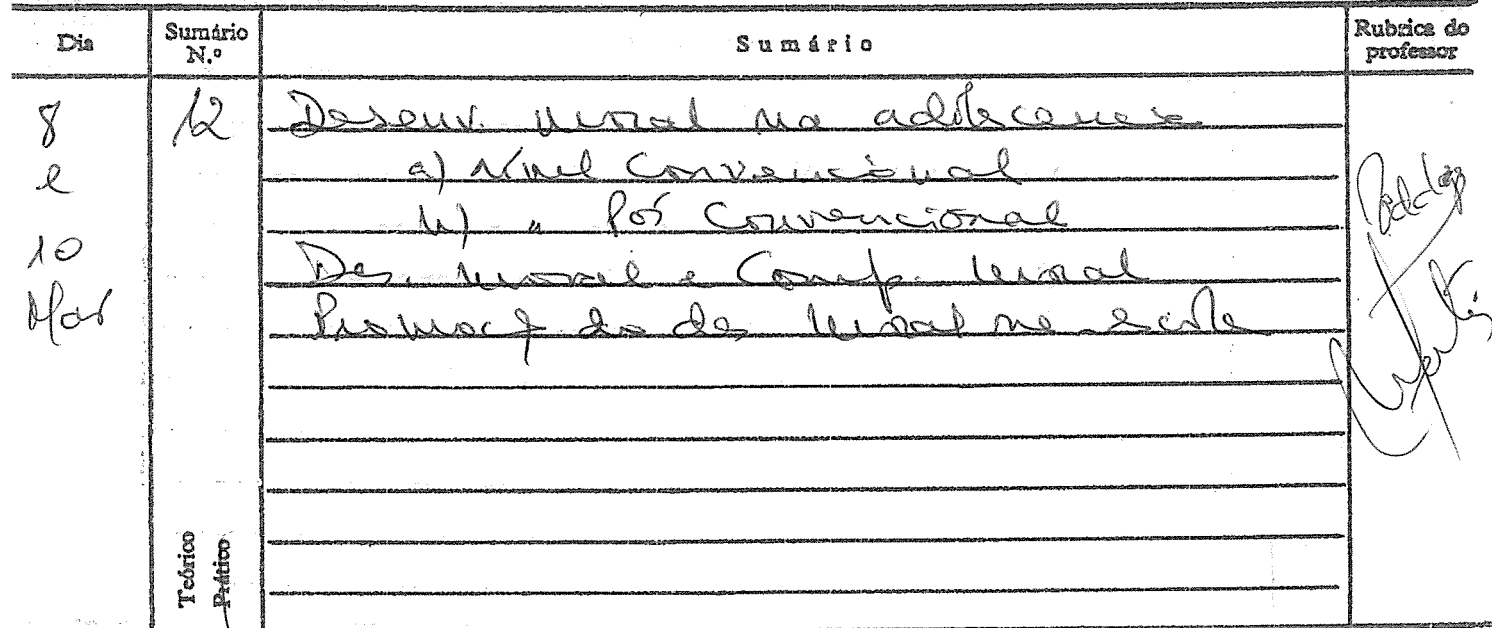 Dia Sumário N.º Sumário Rubrica do professor
8 12 Desenv. moral na adolescencia
e a) nível Convencional
b) " Pós Convencional
10 Des. moral e Comp. moral
Mar Promoç do des moral na escola
Teórico
Prático